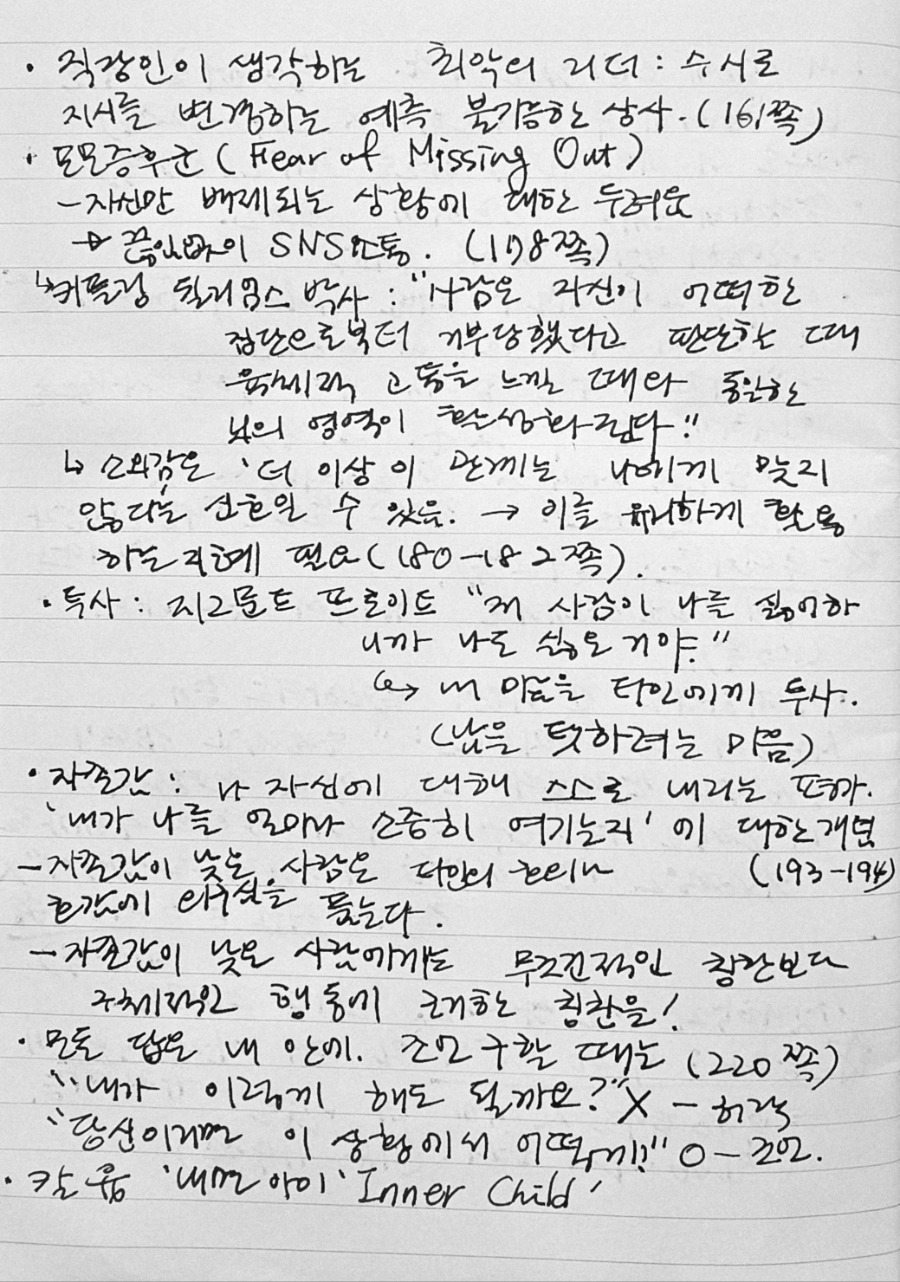 · 직장인이 생각하는 최악의 리더 : 수시로
지시를 변경하는 예측 불가능한 상사. (161쪽)
· 포모증후군 ( Fear of Missing Out )
- 자신만 배제되는 상황에 대한 두려움
→ 끊임없이 SNS소통. (178쪽)
↳ 키플링 윌리엄스 박사 : "사람은 자신이 어떠한
집단으로부터 거부당했다고 판단하는 때
육체적 고통을 느낄 때와 동일한
뇌의 영역이 활성화된다."
↳ 소외감은 '더 이상 이 관계는 나에게 맞지
않다'는 신호일 수 있음. → 이를 유리하게 활용
하는 지혜 필요 (180-182쪽).
· 투사 : 지그문트 프로이트 "저 사람이 나를 싫어하
니까 나도 싫은 거야."
↳ 내 마음을 타인에게 투사.
(남을 탓하려는 마음)
· 자존감 : 나 자신에 대해 스스로 내리는 평가.
'내가 나를 얼마나 소중히 여기는지'에 대한 개념
- 자존감이 낮은 사람은 타인의 호의나 (193-194)
호감에 의구심을 품는다.
- 자존감이 낮은 사람에게는 무조건적인 칭찬보다
구체적인 행동에 근거한 칭찬을!
· 모든 답은 내 안에. 조언 구할 때는 (220쪽)
"내가 이렇게 해도 될까요?" X - 허락
"당신이라면 이 상황에서 어떻게?" O - 조언.
· 칼 융 '내면아이' Inner Child'